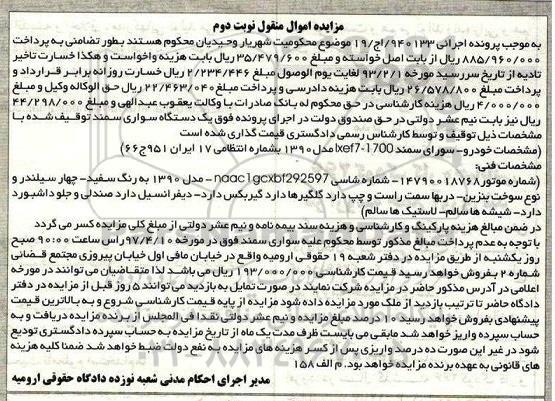 مزایده اموال منقول نوبت دوم
به موجب پرونده اجرائی ۹۴۰۱۳۳/اج/۱۹ موضوع محکومیت شهریار وحیدیان محکوم هستند بطور تضامنی به پرداخت
۸۸۵/۹۶۰/۰۰۰ ریال از بابت اصل خواسته و مبلغ ۳۵/۴۷۹/۶۰۰ ریال بابت هزینه واخواست و هکذا خسارت تاخیر
تادیه از تاریخ سررسید مورخه ۹۳/۲/۱ لغایت یوم الوصول مبلغ ۲/۲۳۴/۴۴۶ ریال خسارت روزانه برابر قرارداد و
پرداخت مبلغ ۲۶/۵۷۸/۸۰۰ ریال بابت هزینه دادرسی و پرداخت مبلغ ۲۲/۴۶۳/۰۴۰ ریال حق الوکاله وکیل و مبلغ
۴/۰۰۰/۰۰۰ ریال هزینه کارشناسی در حق محکوم له بانک صادرات با وکالت یعقوب عبدالهی و مبلغ ۴۴/۲۹۸/۰۰۰
ریال نیز بابت نیم عشر دولتی در حق صندوق دولت در اجرای پرونده فوق یک دستگاه سواری سمند توقیف شده با
مشخصات ذیل توقیف و توسط کارشناس رسمی دادگستری قیمت گذاری شده است
(مشخصات خودرو- سورای سمند lxef7-1700 مدل ۱۳۹۰ بشماره انتظامی ۱۷ ایران ۹۵۱ج۶۶)
مشخصات فنی:
(شماره موتور ۱۴۷۹۰۰۱۸۷۶۸- شماره شاسی naac1gcxbf292597 - مدل ۱۳۹۰ به رنگ سفید- چهار سیلندر و
نوع سوخت بنزین- دربها سمت راست و چپ دارد گلگیرها دارد گیربکس دارد- دیفرانسیل دارد صندلی و جلو داشبورد
دارد- شیشه ها سالم- لاستیک ها سالم)
در ضمن مبالغ هزینه پارکینگ و کارشناسی و هزینه سند بیمه نامه و نیم عشر دولتی از مبلغ کلی مزایده کسر می گردد
با توجه به عدم پرداخت مبالغ مذکور توسط محکوم علیه سواری سمند فوق در مورخه ۹۷/۴/۱۰ راس ساعت ۹:۰۰ صبح
روز یکشنبه از طریق مزایده در دفتر شعبه ۱۹ حقوقی ارومیه واقع در خیابان مافی اول خیابان پیروزی مجتمع قضائی
شماره ۲ بفروش خواهد رسید قیمت کارشناسی ۱۹۳/۰۰۰/۰۰۰ ریال می باشد. لذا متقاضیان می توانند در مورخه
اعلامی در آدرس مذکور حاضر در مزایده شرکت نمایند در صورت تمایل به بازدید می توانند ۵ روز قبل از مزایده در دفتر
دادگاه حاضر تا ترتیب بازدید از ملک مورد مزایده داده شود مزایده از پایه قیمت کارشناسی شروع و به بالاترین قیمت
پیشنهادی بفروش خواهد رسید ده درصد مبلغ مزایده و نیم عشر دولتی نقدا فی المجلس از برنده مزایده دریافت و به
حساب سپرده واریز خواهد شد مابقی می بایست ظرف مدت یک ماه از تاریخ مزایده به حساب سپرده دادگستری تودیع
شود در غیر این صورت ده درصد واریزی پس از کسر هزینه های مزایده به نفع دولت ضبط خواهد شد ضمنا کلیه هزینه
های قانونی به عهده برنده مزایده خواهد بود. م الف ۱۵۸
مدیر اجرای احکام مدنی شعبه نوزده دادگاه حقوقی ارومیه